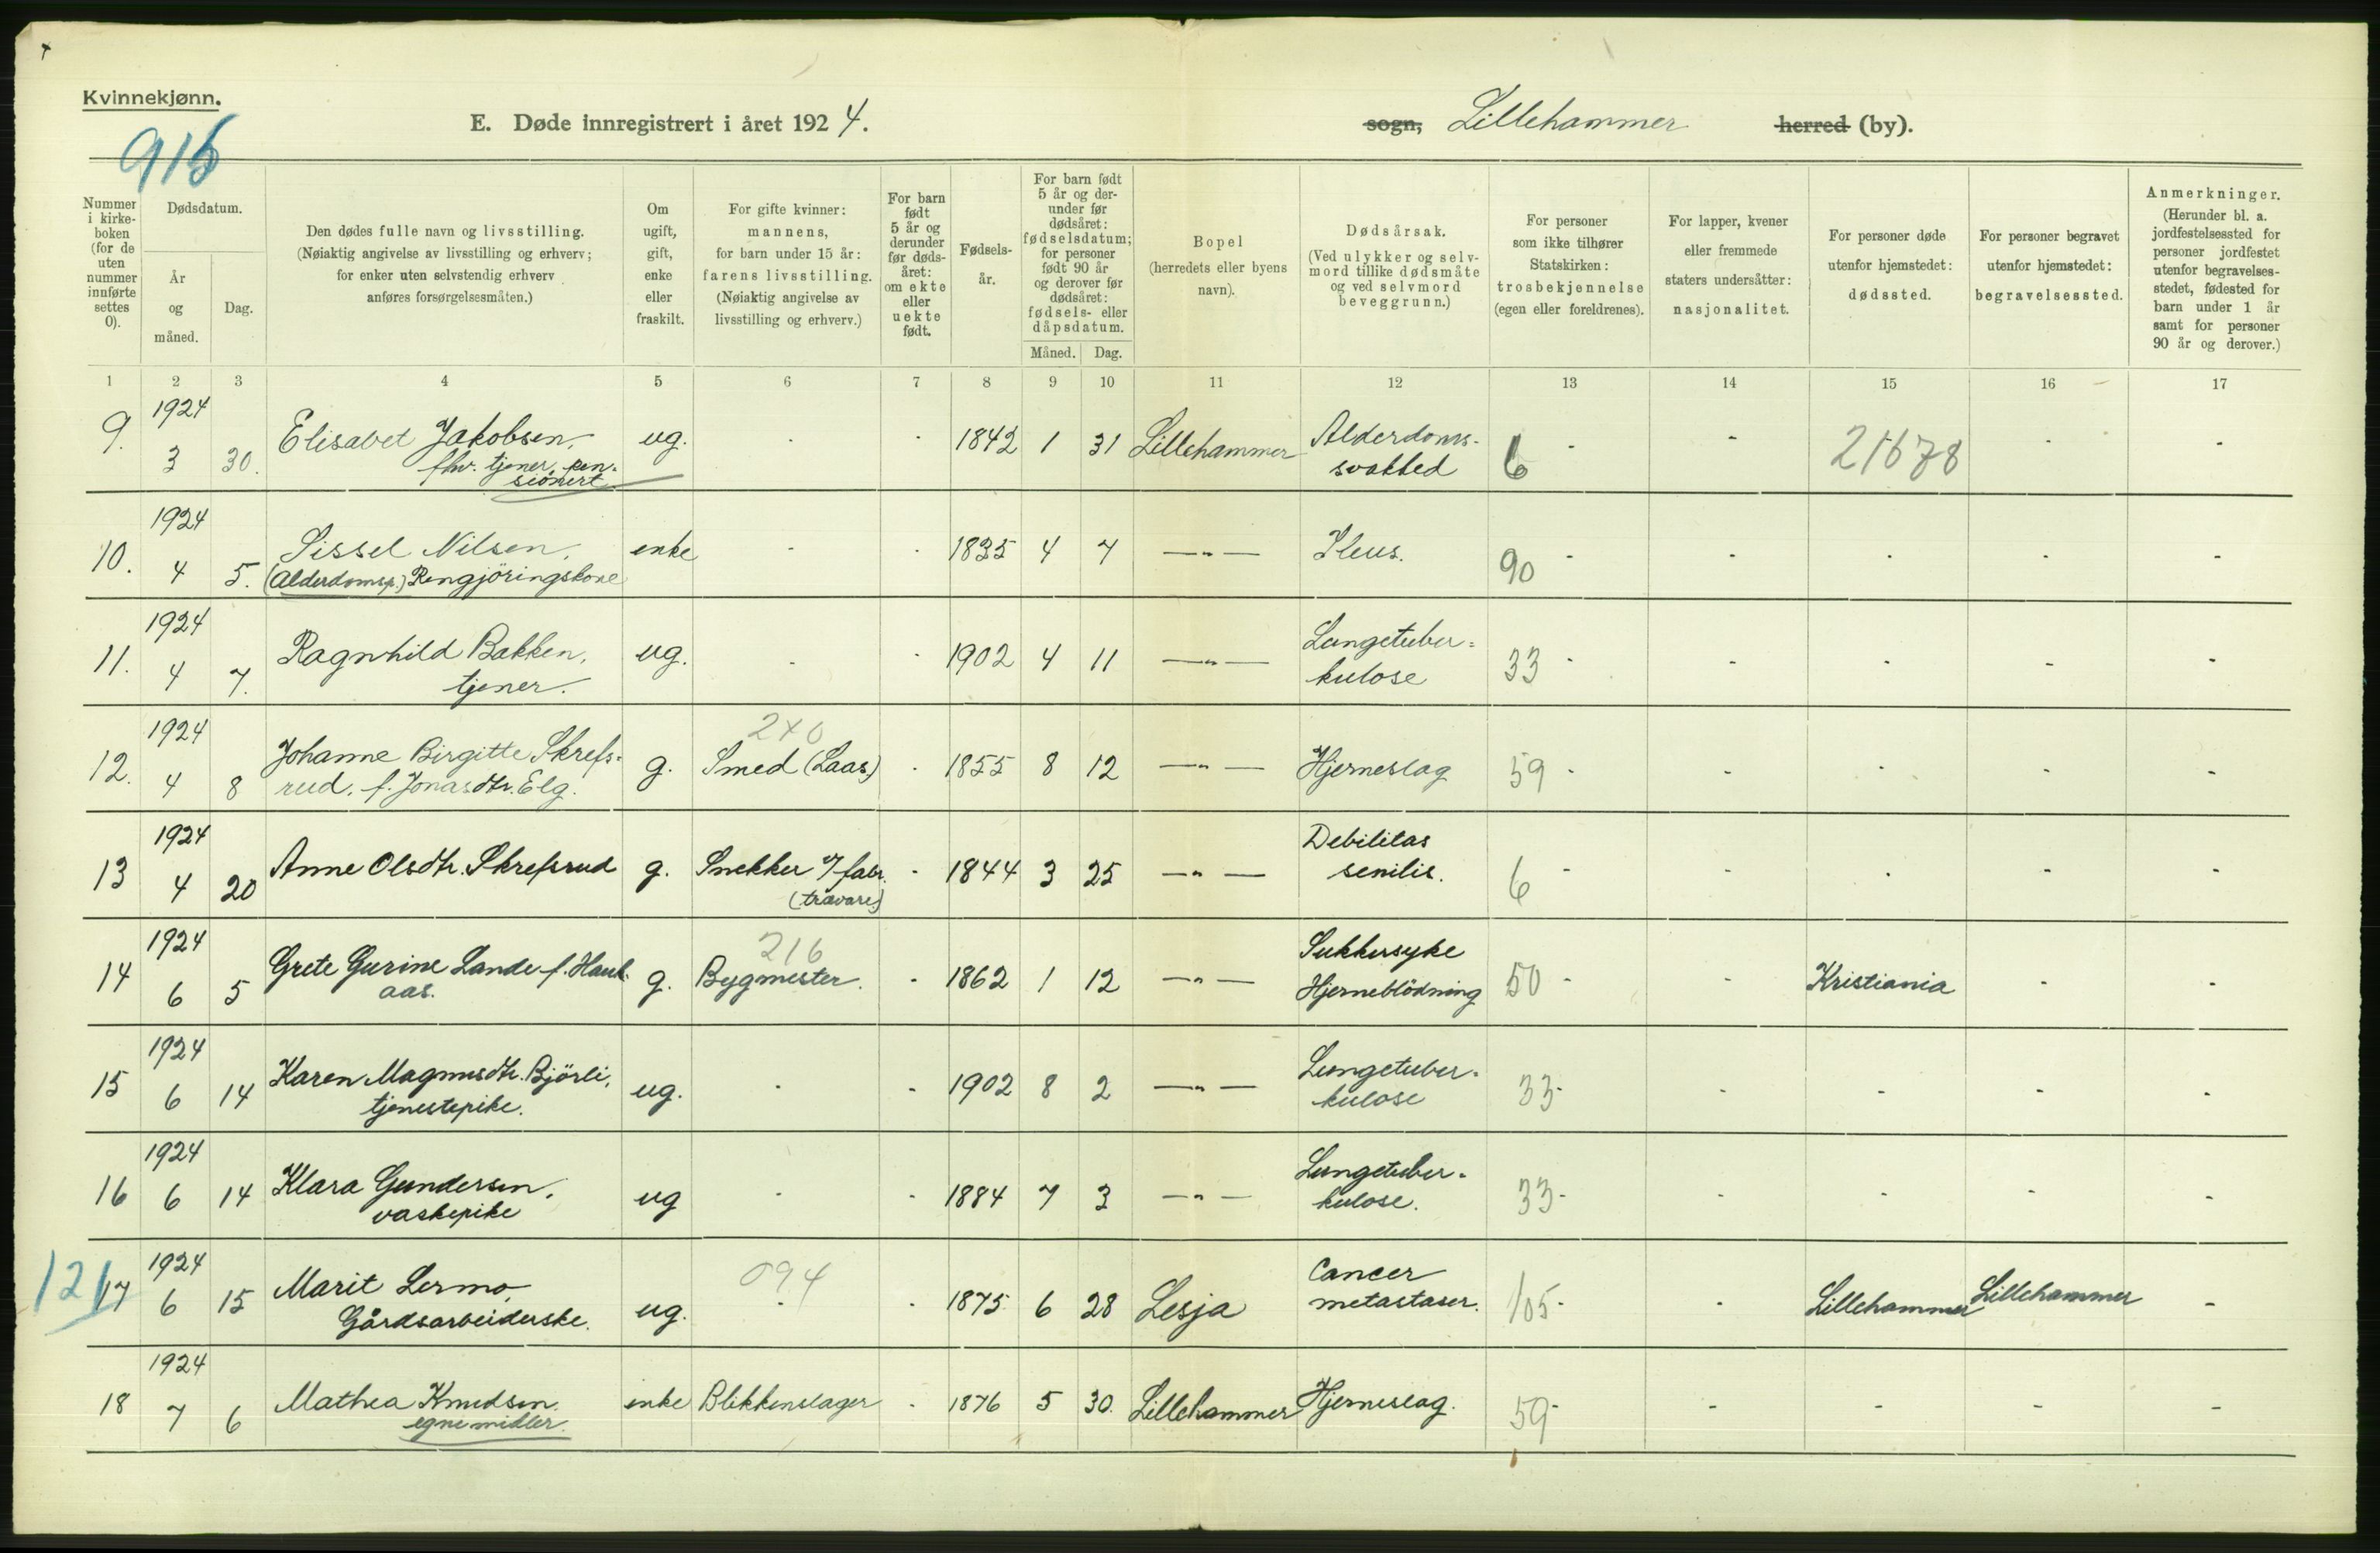 Kvinnekjønn.
916
E. Døde innregistrert i året 1924.
sogn, Lillehammer herred (by).
Nummer i kirke-boken (for de uten nummer innførte settes 0).
Dødsdatum.
År og måned.
Dag.
Den dødes fulle navn og livsstilling.
(Nøiaktig angivelse av livsstilling og erhverv;
for enker uten selvstendig erhverv
anføres forsørgelsesmåten.)
Om ugift, gift, enke eller fraskilt.
For gifte kvinner:
mannens,
for barn under 15 år:
farens livsstilling.
(Nøiaktig angivelse av
livsstilling og erhverv.)
For barn født 5 år og derunder før døds-året: om ekte eller uekte født.
Fødsels-år.
For barn født 5 år og der-under før dødsåret: fødselsdatum; for personer født 90 år og derover før dødsåret: fødsels- eller dåpsdatum.
Måned. Dag.
Bopel
(herredets eller byens
navn).
Dødsårsak.
(Ved ulykker og selv-
mord tillike dødsmåte
og ved selvmord
beveggrunn.)
For personer
som ikke tilhører
Statskirken:
trosbekjennelse
(egen eller foreldrenes).
For lapper, kvener
eller fremmede
staters undersåtter:
nasjonalitet.
For personer døde
utenfor hjemstedet:
dødssted.
For personer begravet
utenfor hjemstedet:
begravelsessted.
Anmerkninger.
(Herunder bl. a.
jordfestelsessted for
personer jordfestet
utenfor begravelses-
stedet, fødested for
barn under 1 år
samt for personer
90 år og derover.)
1 2 3 4 5 6 7 8 9 10 11 12 13 14 15 16 17
1924
9. 3 30. Elisabet Jakobsen, ug. - - 1842 1 31 Lillehammer Alderdoms- - - 21678 - -
fhv. tjener, pen- svakhed 6
sionert
1924
10. 4 5. Sissel Nilsen, enke - - 1835 4 7 —"— Ileus. 90 - - - - -
(Alderdomsp.) Rengjöringskone
1924
11. 4 7. Ragnhild Bakken, ug. - - 1902 4 11 —"— Lungetuber= 33 - - - - -
tjener. kulose
1924 240
12. 4 8 Johanne Birgitte Skrefs- g. Smed (Laas) - 1855 8 12 —"— Hjerneslag 59 - - - - -
rud. f. Jonasdtr. Elg.
1924
13 4 20 Anne Olsdtr. Skrefsrud g. Snekker & fabr. - 1844 3 25 —"— Debilitas 6 - - - - -
(trævare) senilis.
1924 216
14 6 5 Grete Gurine Lande f. Hauk- g. Bygmester. - 1862 1 12 —"— Sukkersyke 50 - - Kristiania - -
aas. Hjerneblödning
1924
15 6 14 Karen Magnusdtr. Björli, ug. - - 1902 8 2 —"— Lungetuber- 33 - - - - -
tjenestepike. kulose
1924
16 6 14 Klara Gundersen, ug - - 1884 7 3 —"— Lungetuber- 33 - - - - -
vaskepike kulose.
121
1924 094
17 6 15 Marit Lermo, ug. - - 1875 6 28 Lesja Cancer 105 - - Lillehammer Lillehammer -
Gårdsarbeiderske. metastaser.
1924
18 7 6 Mathea Knudsen. enke Blikkenslager - 1876 5 30. Lillehammer Hjerneslag. 59 - - - - -
egne midler.